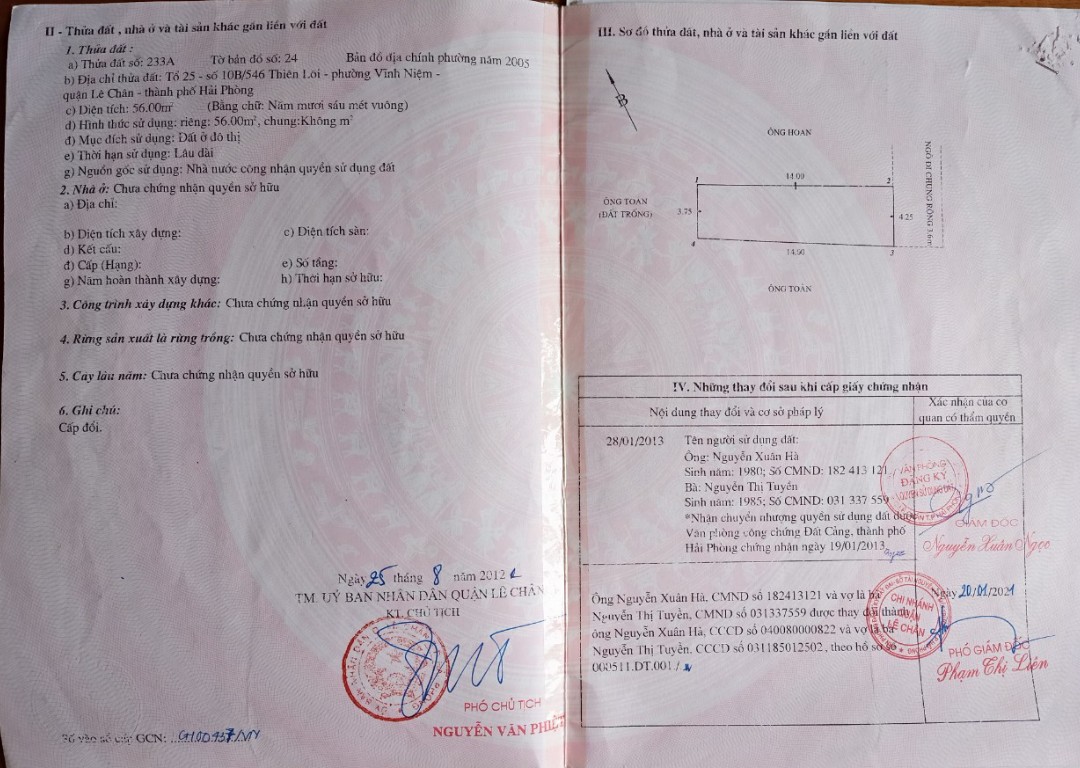 II - Thửa đất , nhà ở và tài sản khác gắn liền với đất
1. Thửa đất :
a) Thửa đất số: 233A Tờ bản đồ số: 24 Bản đồ địa chính phường năm 2005
b) Địa chỉ thửa đất: Tổ 25 - số 10B/546 Thiên Lôi - phường Vĩnh Niệm -
quận Lê Chân - thành phố Hải Phòng
c) Diện tích: 56.00m² (Bằng chữ: Năm mươi sáu mét vuông)
d) Hình thức sử dụng: riêng: 56.00m², chung:Không m²
đ) Mục đích sử dụng: Đất ở đô thị
e) Thời hạn sử dụng: Lâu dài
g) Nguồn gốc sử dụng: Nhà nước công nhận quyền sử dụng đất
2. Nhà ở: Chưa chứng nhận quyền sở hữu
a) Địa chỉ:
b) Diện tích xây dựng: c) Diện tích sàn:
d) Kết cấu:
đ) Cấp (Hạng): e) Số tầng:
g) Năm hoàn thành xây dựng: h) Thời hạn sở hữu:
3. Công trình xây dựng khác: Chưa chứng nhận quyền sở hữu
4. Rừng sản xuất là rừng trồng: Chưa chứng nhận quyền sở hữu
5. Cây lâu năm: Chưa chứng nhận quyền sở hữu
6. Ghi chú:
Cấp đổi.
Ngày 25 tháng 8 năm 2012
TM. UỶ BAN NHÂN DÂN QUẬN LÊ CHÂN
KT. CHỦ TỊCH
PHÓ CHỦ TỊCH
NGUYỄN VĂN PHIỆT
Số vào sổ cấp GCN:
III. Sơ đồ thửa đất, nhà ở và tài sản khác gắn liền với đất
B
ÔNG HOAN
NGÕ ĐI CHUNG RỘNG 3.6m
1 14.00 2
ÔNG TOÀN
(ĐẤT TRỐNG)
3.75 4.25
4 14.00 3
ÔNG TOÀN
IV. Những thay đổi sau khi cấp giấy chứng nhận
Nội dung thay đổi và cơ sở pháp lý
Xác nhận của cơ
quan có thẩm quyền
28/01/2013 Tên người sử dụng đất:
Ông: Nguyễn Xuân Hà
Sinh năm: 1980; Số CMND: 182 413 121
Bà: Nguyễn Thị Tuyền
Sinh năm: 1985; Số CMND: 031 337 559
*Nhận chuyển nhượng quyền sử dụng đất được
Văn phòng công chứng Đất Cảng, thành phố
Hải Phòng chứng nhận ngày 19/01/2013
VĂN PHÒNG
ĐĂNG KÝ
QUYỀN SỬ DỤNG ĐẤT
GIÁM ĐỐC
Nguyễn Xuân Ngọc
Ông Nguyễn Xuân Hà, CMND số 182413121 và vợ là bà
Nguyễn Thị Tuyền, CMND số 031337559 được thay đổi thành
ông Nguyễn Xuân Hà, CCCD số 040080000822 và vợ là bà
Nguyễn Thị Tuyền, CCCD số 031185012502, theo hồ sơ số
000511.DT.001
Ngày 20/01/2021
CHI NHÁNH
QUẬN
LÊ CHÂN
PHÓ GIÁM ĐỐC
Phạm Thị Liên